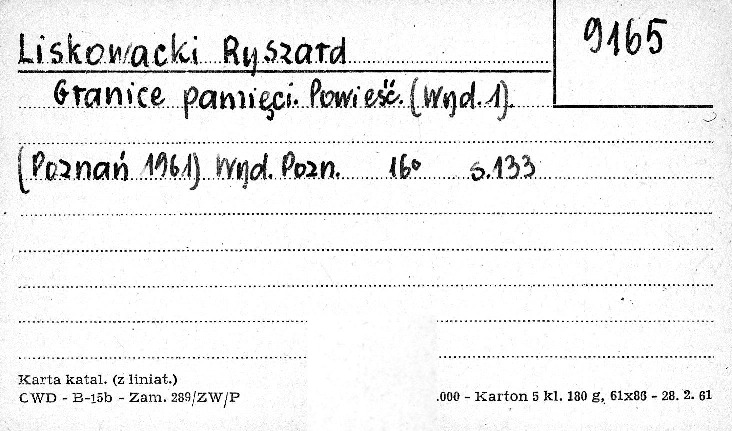 9165
Liskowacki Ryszard
Granice pamięci. Powieść. (Wyd. 1).
(Poznań 1961) Wyd. Pozn. 16° s. 133
Karta katal. (z liniat.)
CWD - B-15b - Zam. 289/ZW/P
.000 - Karton 5 kl. 180 g, 61x86 - 28. 2. 61